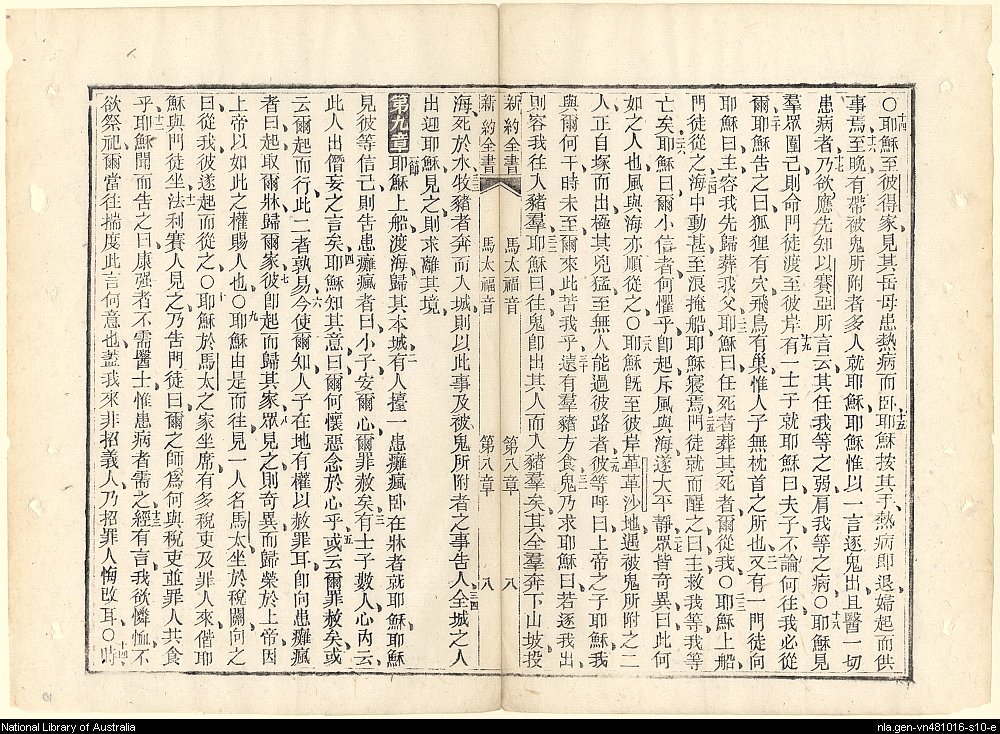 ○耶穌至彼得家見其岳母患熱病而卧耶穌按其手熱病卽退婦起而供
事焉至晚有帶被鬼所附者多人就耶穌耶穌惟以一言逐鬼出且醫一切
患病者乃欲應先知以賽亞所言云其任我等之弱肩我等之病○耶穌見
羣眾圍己則命門徒渡至彼岸有一士子就耶穌曰夫子不論何往我必從
爾耶穌告之曰狐狸有穴飛鳥有巢惟人子無枕首之所也又有一門徒向
耶穌曰主容我先歸葬我父耶穌曰任死者葬其死者爾從我○耶穌上船
門徒從之海中動甚至浪掩船耶穌寢焉門徒就而醒之曰主救我等我等
亡矣耶穌曰爾小信者何懼乎卽起斥風與海遂大平靜眾皆奇異曰此何
如之人也風與海亦順從之○耶穌旣至彼岸革革沙地遇被鬼所附之二
人正自塚而出極其兇猛至無人能過彼路者彼等呼曰上帝之子耶穌我
與爾何干時未至爾來此苦我乎遠有羣豬方食鬼乃求耶穌曰若逐我出
則容我往入豬羣耶穌曰往鬼卽出其人而入豬羣矣其全羣奔下山坡投
新約全書 馬太福音 第八章 八
新約全書 馬太福音 第八章 八
海死於水牧豬者奔而入城則以此事及被鬼所附者之事告人全城之人
出迎耶穌見之則求離其境
第九章 一節 耶穌上船渡海歸其本城有人擡一患癱瘋卧在牀者就耶穌耶穌
見彼等信己則告患癱瘋者曰小子安爾心爾罪赦矣有士子數人心內云
此人出僭妄之言矣耶穌知其意曰爾何懷惡念於心乎或云爾罪赦矣或
云爾起而行此二者孰易今使爾知人子在地有權以赦罪耳卽向患癱瘋
者曰起取爾牀歸爾家彼卽起而歸其家眾見之則奇異而歸榮於上帝因
上帝以如此之權賜人也○耶穌由是而往見一人名馬太坐於稅關向之
曰從我彼遂起而從之○耶穌於馬太之家坐席有多稅吏及罪人來偕耶
穌與門徒坐法利賽人見之乃告門徒曰爾之師爲何與稅吏並罪人共食
乎耶穌聞而告之曰康强者不需醫士惟患病者需之經有言我欲憐恤不
欲祭祀爾當往揣度此言何意也蓋我來非招義人乃招罪人悔改耳○時
National Library of Australia
nla.gen-vn481016-s10-e